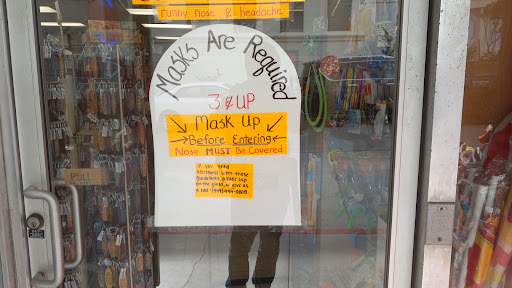 runny nose & headache
Masks Are Required
3 & UP
Mask Up
Before Entering
Nose MUST Be Covered
if you need
assistance with these
guidelines please tap
on the glass, or give us
a call
PULL